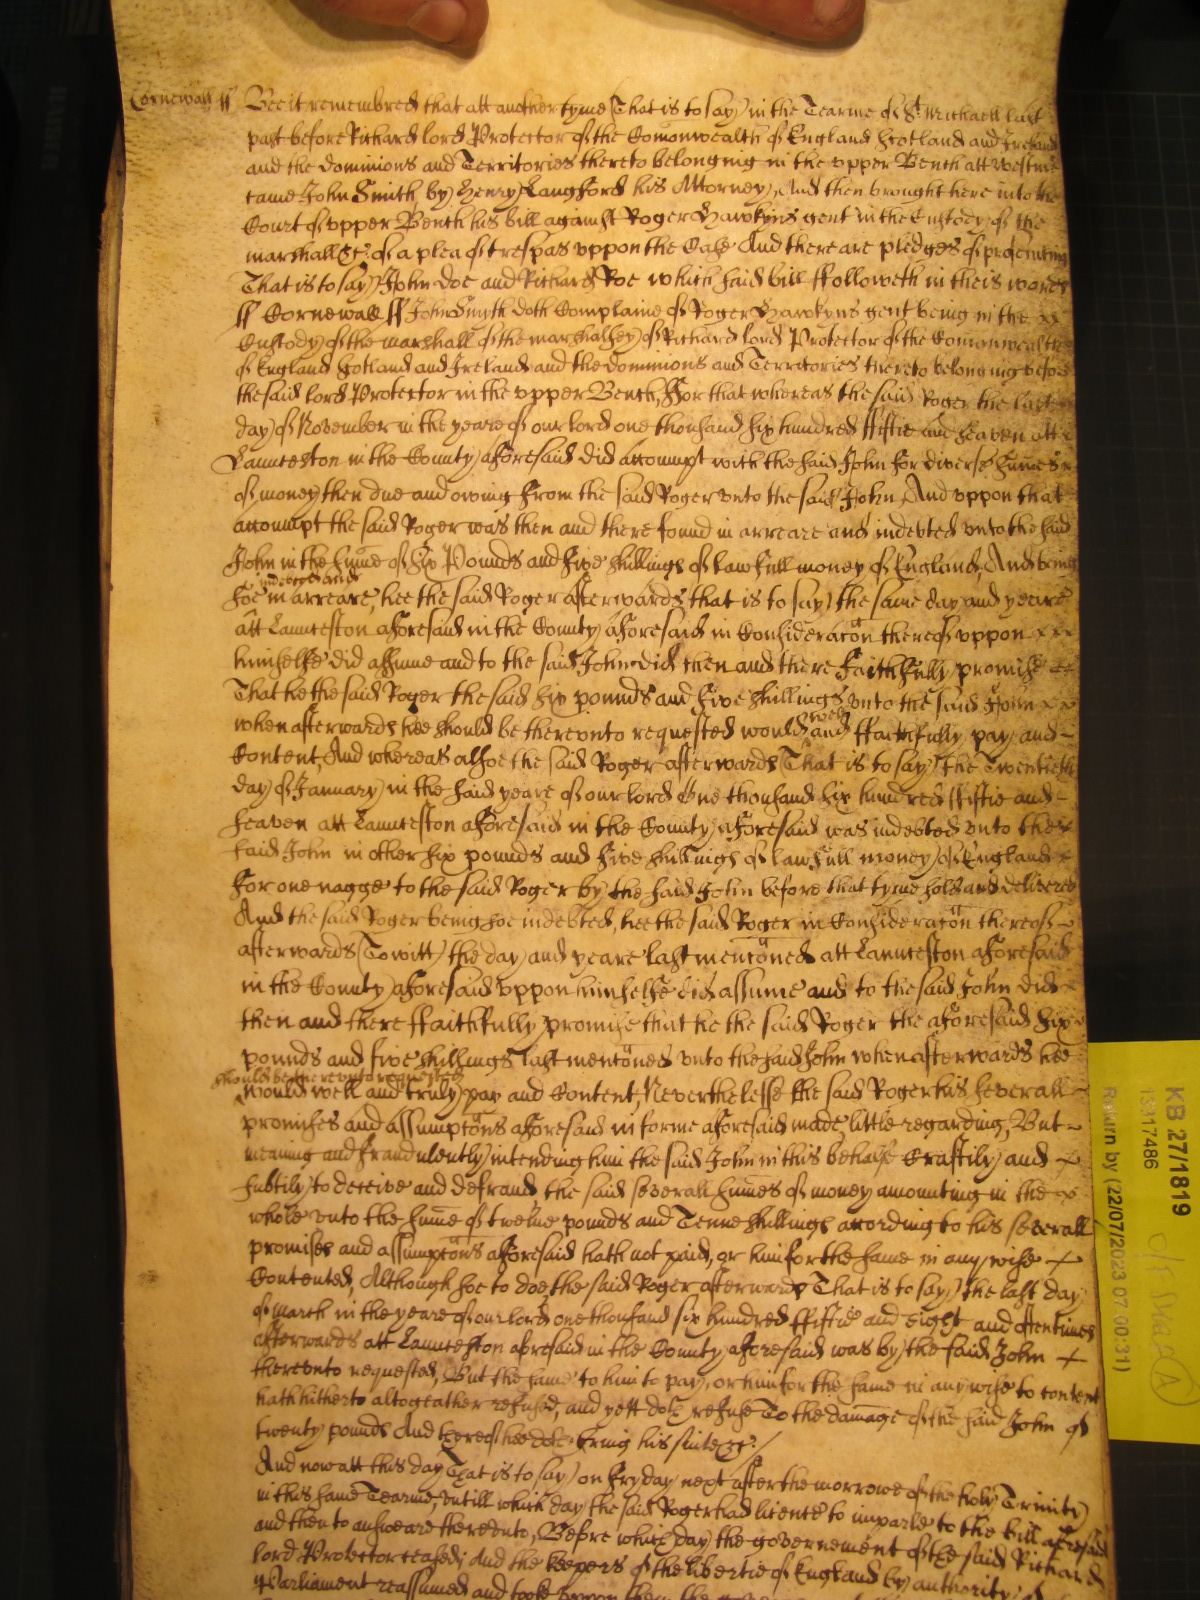 Cornewall ss Bee it remembred that att another tyme (That is to say) in the Tearme of St. Michaell last
past before Richard lord Protector of the Comonwealth of England Scotland and Ireland
and the dominions and Territories thereto belonging in the vpper Bench att Westmr
came John Smith by Henry Langford his Attorney, And then brought here into the
Court of vpper Bench his bill against Roger Hawkyns gent in the Custody of the
marshall &c: of a plea of trespas vppon the Case And there are pledges of prosecuting
That is to say John Doe and Richard Roe which said bill ffolloweth in theis words
ss Cornewall ss John Smyth doth Complaine of Roger Hawkyns gent being in the
Custody of the marshall of the marshalsey of Richard lord Protector of the Comonwealth
of England Scotland and Ireland and the dominions and Territories thereto belonging before
the said lord Protector in the vpper Bench, For that whereas the said Roger the last
day of November in the yeare of our lord one thousand six hundred ffiftie and seaven att
Launceston in the County aforesaid did accompt with the said John for diverse summes
of money then due and owing from the said Roger vnto the said John, And vppon that
accompt the said Roger was then and there found in arreare and indebted vnto the said
John in the summe of six Pounds and five shillings of lawfull money of England, And being
indebted and
soe in arreare, hee the said Roger afterwards that is to say the same day and yeare
att Launceston aforesaid in the County aforesaid in Consideracon thereof vppon
himselfe did assume and to the said John did then and there faithfully promise
That he the said Roger the said six pounds and five shillings vnto the said John
when afterwards hee should be therevnto requested would well and ffaithfully pay and
Content, And whereas alsoe the said Roger afterwards (That is to say) the Twentieth
day of January in the said yeare of our lord One thousand six hundred ffiftie and
seaven att Launceston aforesaid in the County aforesaid was indebted vnto the
said John in other six pounds and five shillings of lawfull money of England
for one nagge to the said Roger by the said John before that tyme sold and delivered
And the said Roger being soe indebted, hee the said Roger in Consideracon thereof
afterwards (To witt) the day and yeare last mencōned att Launceston aforesaid
in the County aforesaid vppon himselfe did assume and to the said John did
then and there ffaithfully promise that he the said Roger the aforesaid six
pounds and five shillings last mencōned vnto the said John when afterwards hee
should be therevnto requested
would well and truly pay and Content, Neverthelesse the said Roger his severall
promises and assumptōns aforesaid in forme aforesaid made, little regarding, But
meaning and fraudulently intending him the said John in this behalfe Craftily and
subtily to deceive and defraud, the said severall summes of money amounting in the
whole vnto the summe of twelve pounds and Tenne shillings according to his severall
promises and assumptōns aforesaid hath not paid, or him for the same in any wise
Contented, Although soe to doe, the said Roger afterwards That is to say, the last day
of march in the yeare of our lord one thousand six hundred ffiftie and eight and oftentimes
afterwards att Launceston aforesaid in the County aforesaid was by the said John
therevnto requested, But the same to him to pay, or him for the same in any wise to content
hath hitherto altogeather refused, and yett doth refuse To the damage of the said John of
twenty pounds And thereof hee doth bring his suite &c:/
And now att this day That is to say on Fryday next after the morrowe of the holy Trinity
in this same Tearme, vntill which day the said Roger had licence to imparle to the bill aforesaid
and then to answeare therevnto, Before which day the governement of the said Richard
lord Protector ceased; And the keepers of the libertie of England by authority of
Parliament reassumed and tooke vppon them the
KB 27/1819
13317486
Return by (22/07/2023 07:00:31)
A